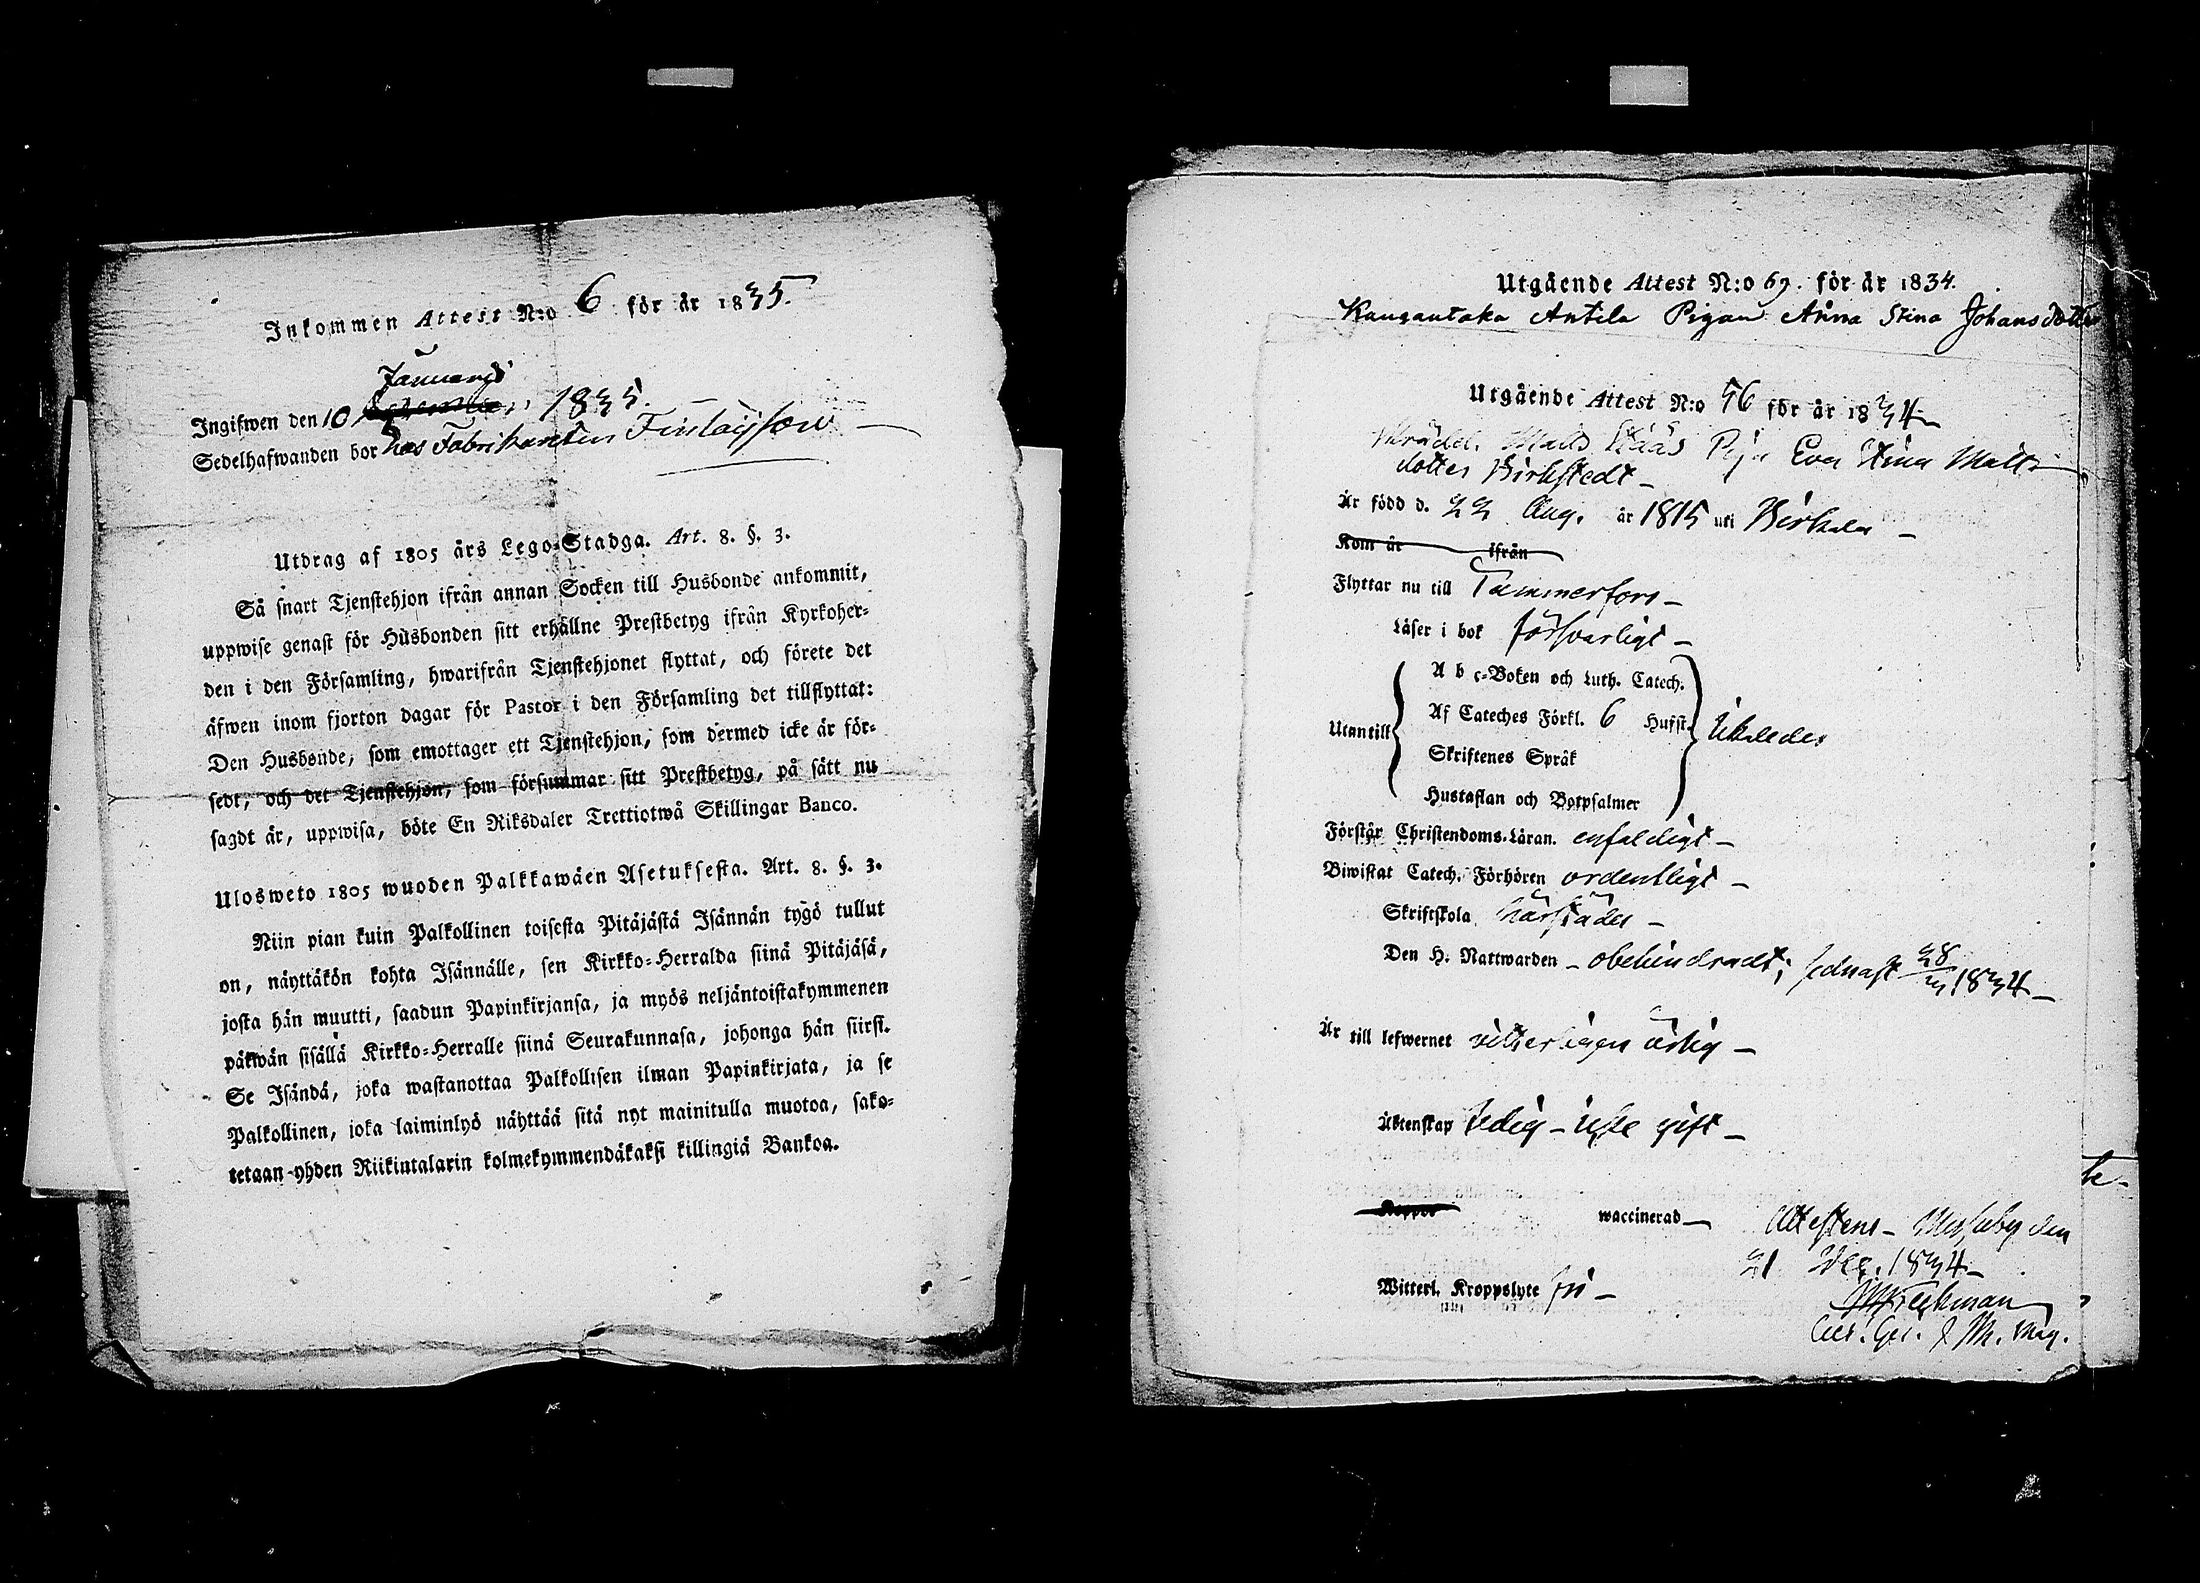 Inkommen Attest N:o 6 för år 1835.
Januarii
Ingifwen den 10 1835.
Sedelhafwanden bor hos Fabrikanten Finlayson
Utdrag af 1805 års Lego-Stadga. Art. 8. §. 3.
Så snart Tjenstehjon ifrån annan Socken till Husbonde ankommit,
uppwise genast för Husbonden sitt erhållne Prestbetyg ifrån Kyrkoher-
den i den Församling, hwarifrån Tjenstehjonet flyttat, och förete det
äfwen inom fjorton dagar för Pastor i den Församling det tillflyttat:
Den Husbonde, som emottager ett Tjenstehjon, som dermed icke är för-
sedt, och det Tjenstehjon, som försummar sitt Prestbetyg, på sätt nu
sagdt är, uppwisa, böte En Riksdaler Trettiotwå Skillingar Banco.
Ulosweto 1805 wuoden Palkkawäen Asetuksesta. Art. 8. §. 3.
Niin pian kuin Palkollinen toisesta Pitäjästä Isännän tygö tullut
on, näyttäkön kohta Isännälle, sen Kirkko-Herralda siinä Pitäjäsä,
josta hän muutti, saadun Papinkirjansa, ja myös neljäntoistakymmenen
päiwän sisällä Kirkko-Herralle siinä Seurakunnasa, johonga hän siirsi.
Se Isändä, joka wastanottaa Palkollisen ilman Papinkirjata, ja se
Palkollinen, joka laiminlyö näyttää sitä nyt mainitulla muotoa, sako-
tetaan yhden Riikintalarin kolmekymmendäkaksi killingiä Bankoa.
Utgående Attest N:o 69. för år 1834.
Kangantaka Antila Pigan Anna Stina Johansdotter
Utgående Attest N:o 56 för år 1834
Matts Pig. Eva Stina Matts
dotter Birkstedt
Är född d. 22 Aug. år 1815 uti Birkala
Kom år ifrån
Flyttar nu till Tammerfors
Läser i bok försvarligt
A b c-Boken och Luth. Catech.
Af Cateches Förkl. 6 Hufst.
Utantill
likaledes
Skriftenes Språk
Hustaflan och Botpsalmer
Förstår Christendoms-Läran. enfaldigt
Biwistat Catech. Förhören ordentligt
Skriftskola härstädes
Den H. Nattwarden obehindradt; sednast 28/ 1834
Är till lefwernet vitterligen ärlig
Äktenskap ledig icke gift
Koppor waccinerad Attesteras Messuby den
21 Dec. 1834
Witterl. Kroppslyte fri